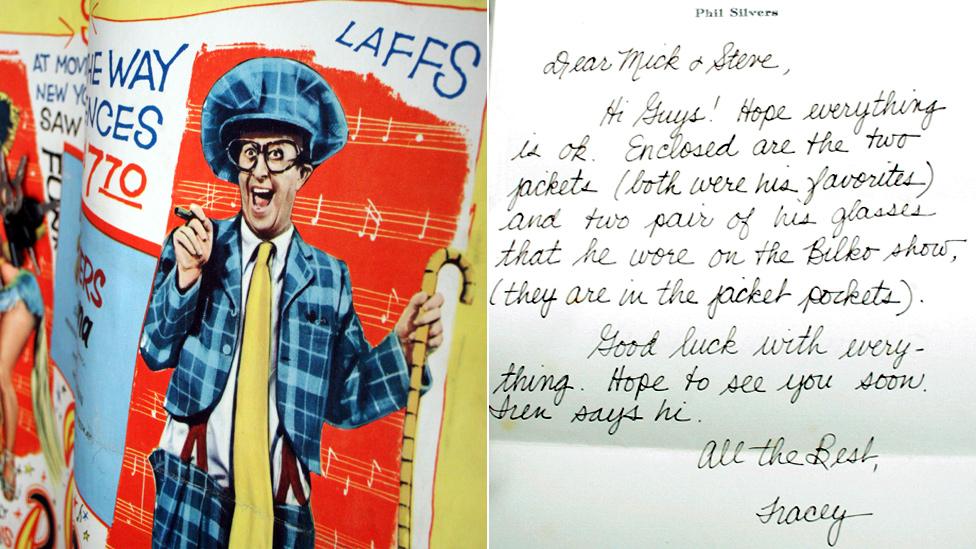 AT MOV
NEW YO
SAW
HE WAY
NCES
770
ERS
LAFFS
Phil Silvers
Dear Mick & Steve,
Hi Guys! Hope everything
is ok. Enclosed are the two
jackets (both were his favorites)
and two pair of his glasses
that he wore on the Bilko show,
(they are in the jacket pockets).
Good luck with every-
thing. Hope to see you soon.
Iren says hi.
All the Best,
Tracey